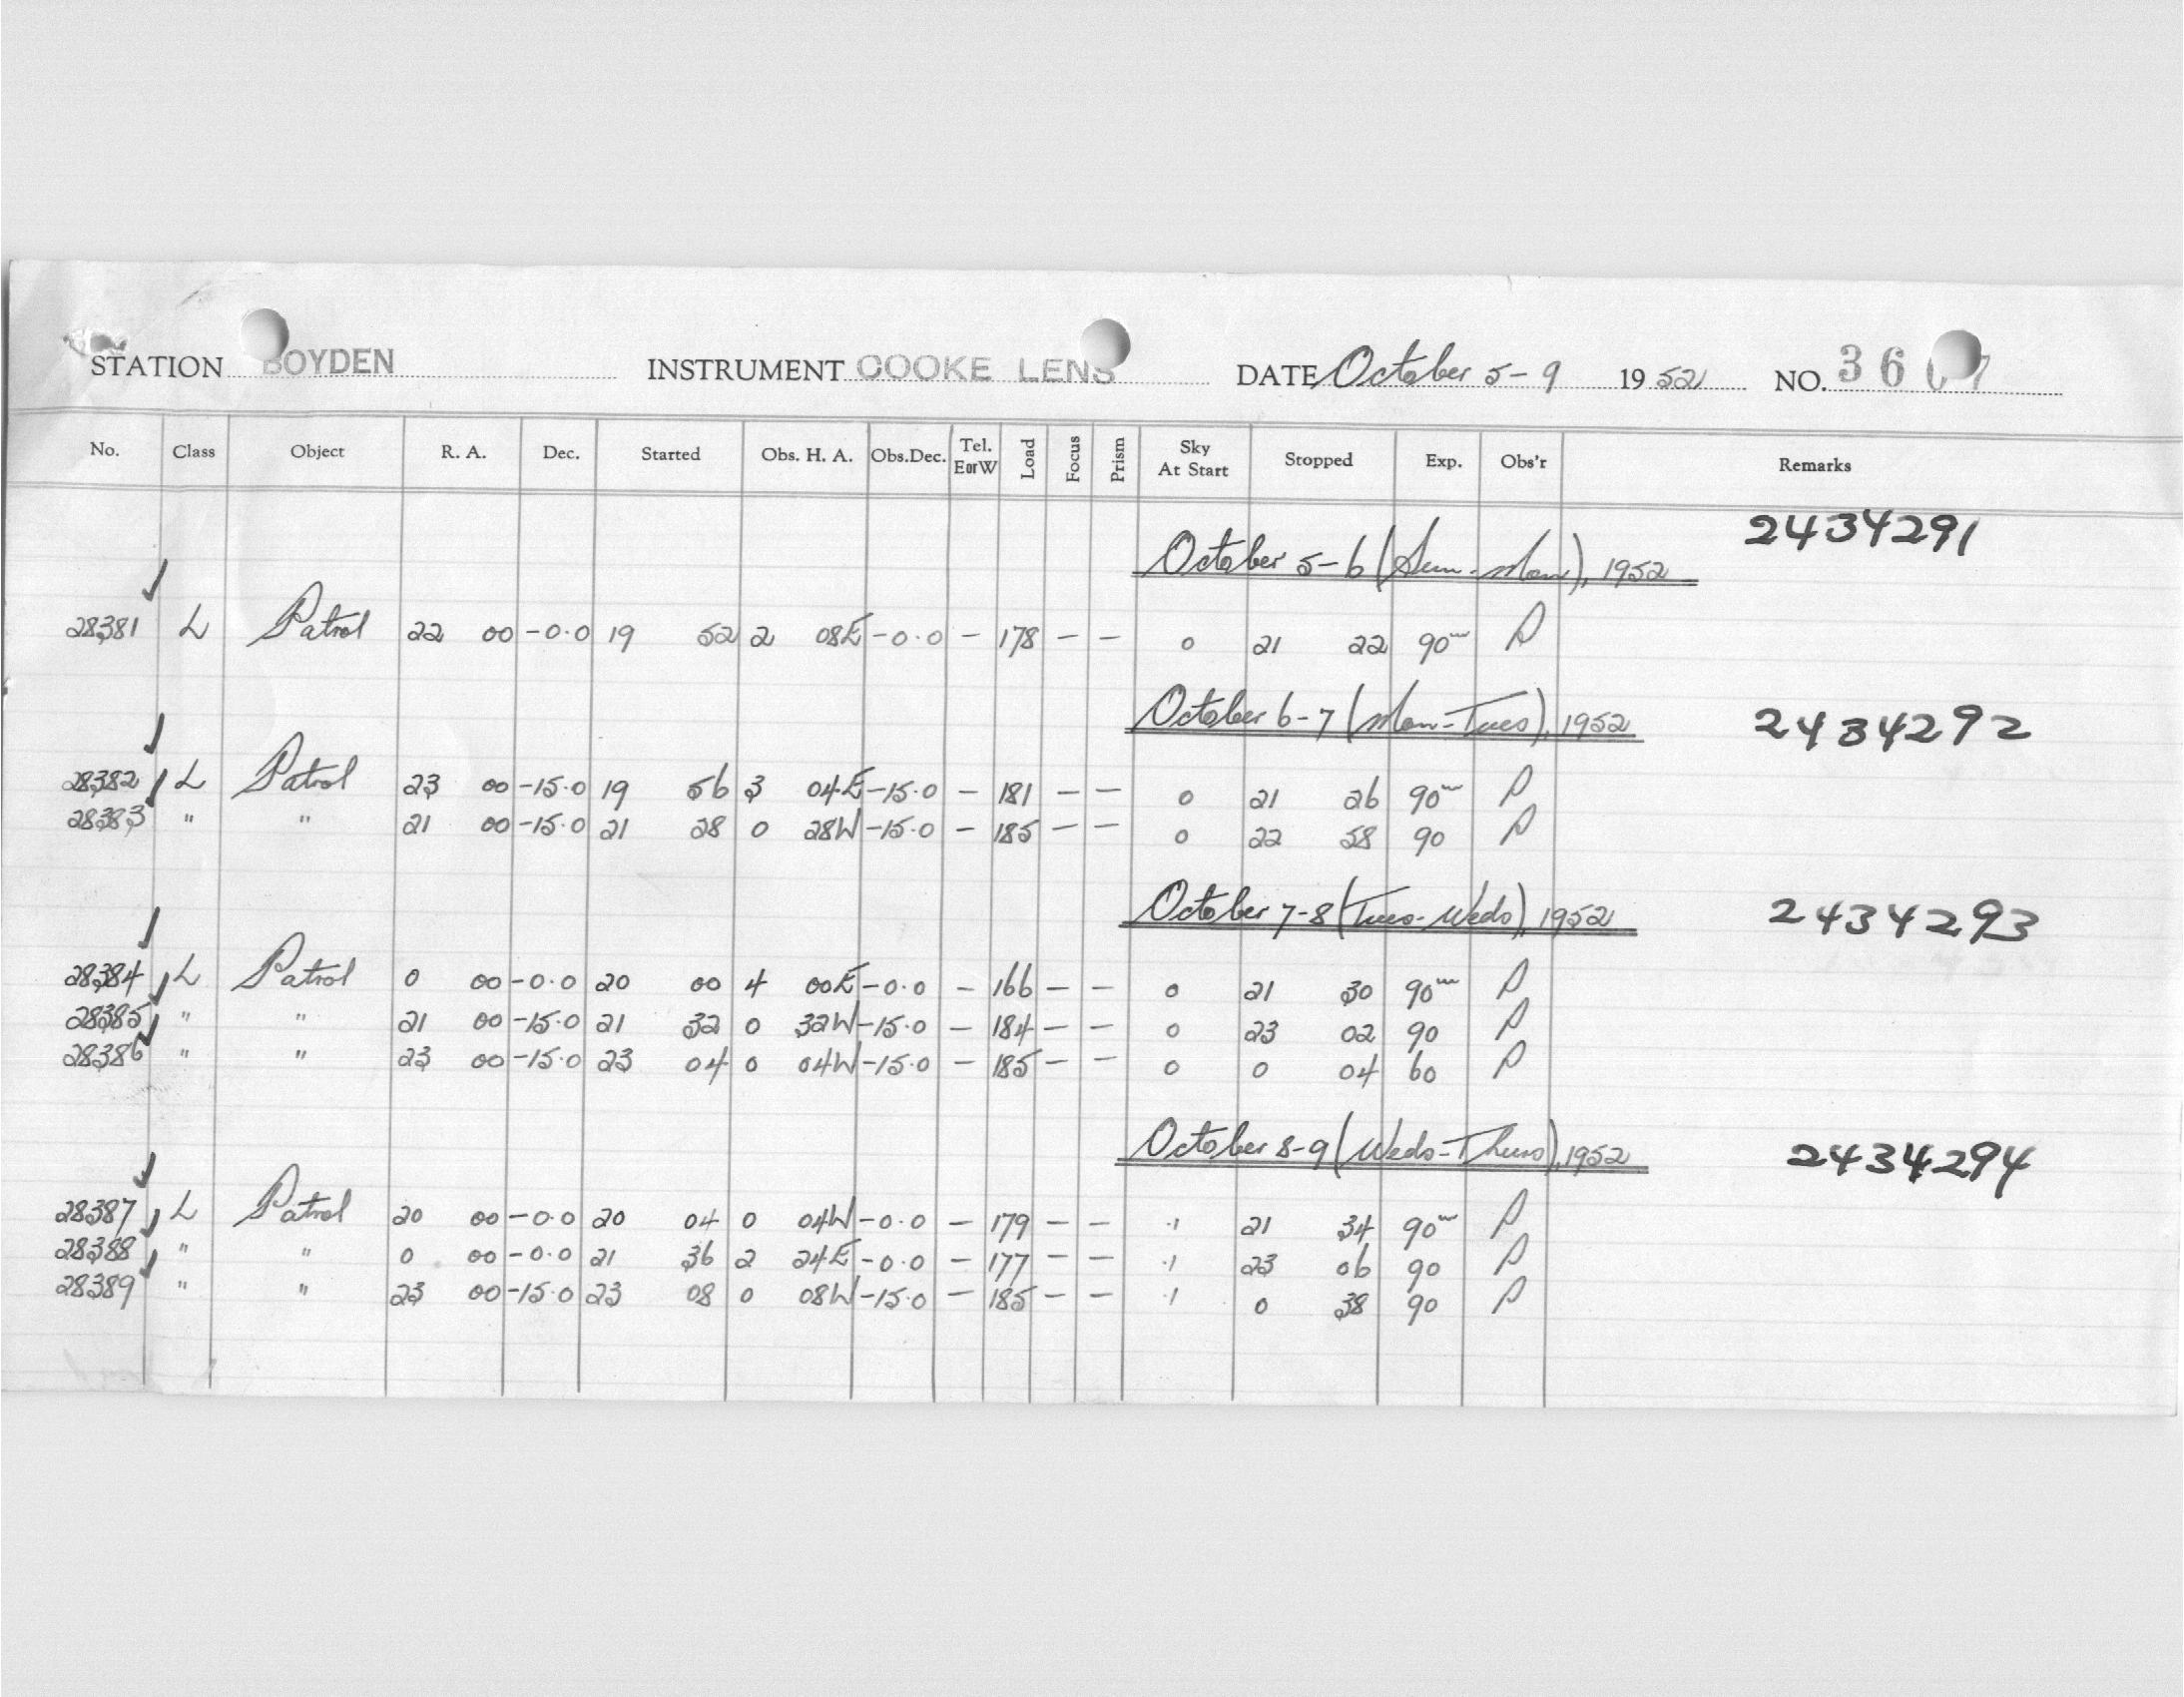 STATION BOYDEN INSTRUMENT COOKE LENS DATE October 5-9 19 52 NO. 36 7
No. Class Object R. A. Dec. Started Obs. H. A. Obs.Dec. Tel. EorW Load Focus Prism Sky At Start Stopped Exp. Obs'r Remarks
2434291
October 5-6 (Sun-Mon), 1952
28381 L Patrol 22 00 -0.0 19 52 2 08E -0.0 - 178 - - 0 21 22 90m
October 6-7 (Mon-Tues), 1952 2434292
28382 L Patrol 23 00 -15.0 19 56 3 04E -15.0 - 181 - - 0 21 26 90m
28383 " " 21 00 -15.0 21 28 0 28W -15.0 - 185 - - 0 22 58 90
October 7-8 (Tues-Weds), 1952 2434293
28384 L Patrol 0 00 -0.0 20 00 4 00E -0.0 - 166 - - 0 21 30 90m
28385 " " 21 00 -15.0 21 32 0 32W -15.0 - 184 - - 0 23 02 90
28386 " " 23 00 -15.0 23 04 0 04W -15.0 - 185 - - 0 0 04 60
October 8-9 (Weds-Thurs), 1952 2434294
28387 L Patrol 20 00 -0.0 20 04 0 04W -0.0 - 179 - - .1 21 34 90m
28388 " " 0 00 -0.0 21 36 2 24E -0.0 - 177 - - .1 23 06 90
28389 " " 23 00 -15.0 23 08 0 08W -15.0 - 185 - - .1 0 38 90